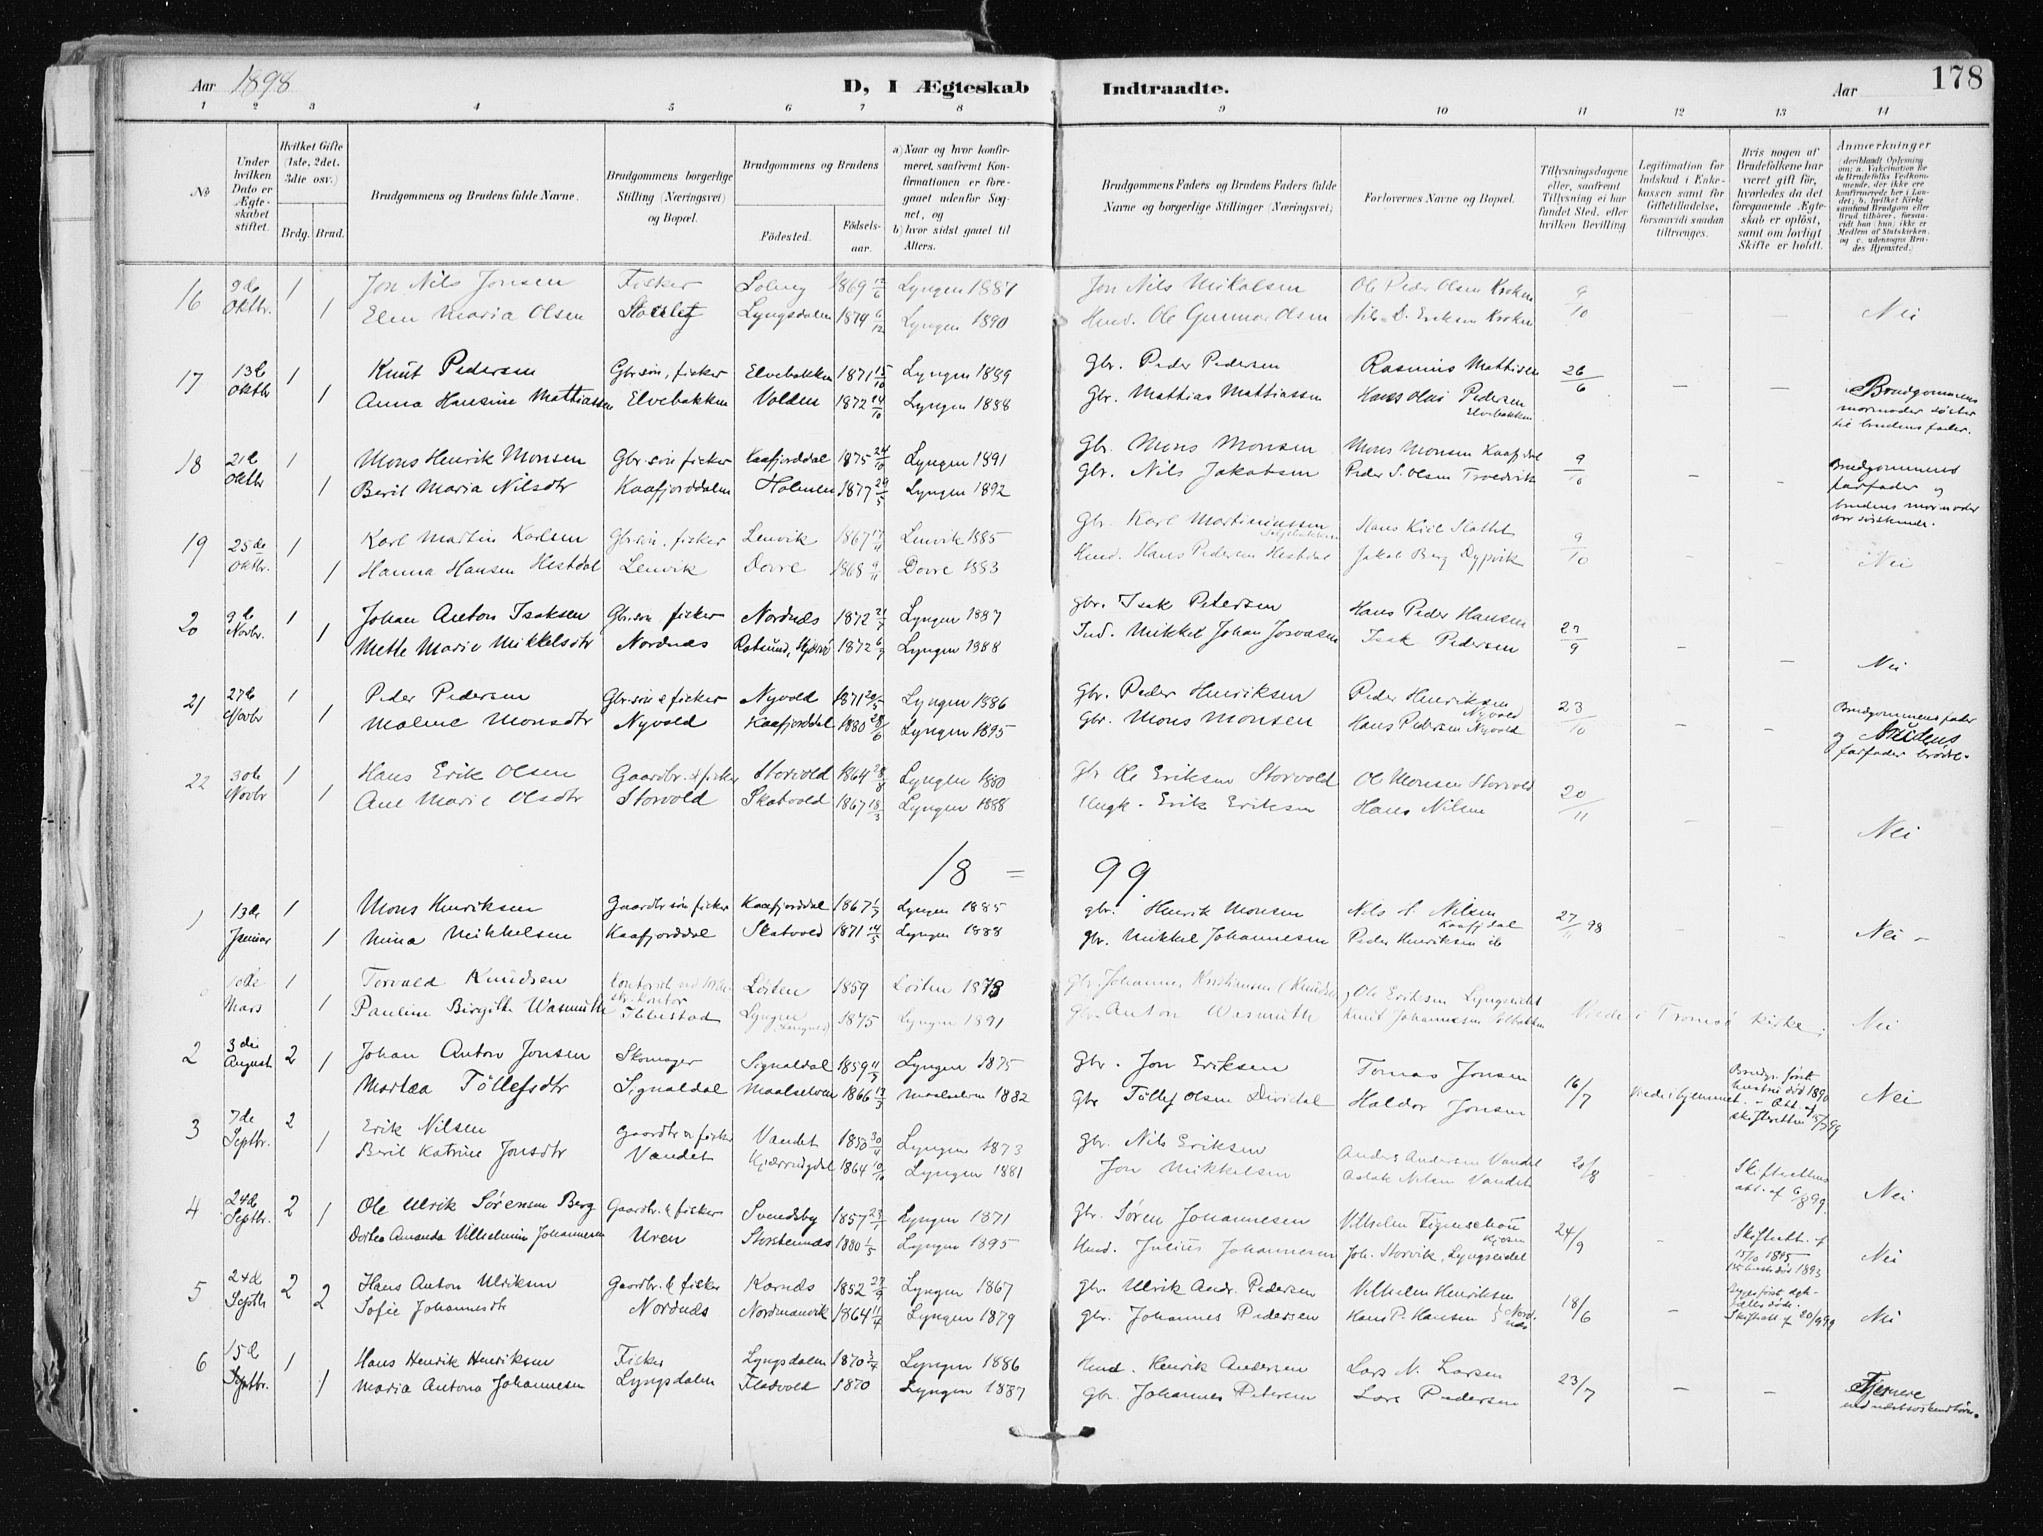 Aar 1898 D, I Ægteskab Indtraadte. Aar 178
1 2 3 4 5 6 7 8 9 10 11 12 13 14
No
Under hvilken Dato er Ægteskabet stiftet.
Hvilket Gifte (1ste, 2det, 3die osv.)
Brdg. Brud.
Brudgommens og Brudens fulde Navne.
Brudgommens borgerlige Stilling (Næringsvei) og Bopæl.
Brudgommens og Brudens
Fødested.
Fødselsaar.
a) Naar og hvor konfirmeret, saafremt Konfirmationen er foregaaet udenfor Sognet, og
b) hvor sidst gaaet til Alters.
Brudgommens Faders og Brudens Faders fulde Navne og borgerlige Stillinger (Næringsvei)
Forlovernes Navne og Bopæl.
Tillysningsdagene eller, saafremt Tillysning ei har fundet Sted, efter hvilken Bevilling
Legitimation for Indskud i Enkekassen samt for Giftetilladelse, forsaavidt saadan tiltrænges.
Hvis nogen af Brudefolkene har været gift før, hvorledes da det foregaaende Ægteskab er opløst, samt om lovligt Skifte er holdt.
Anmærkninger
16 9de Oktbr. 1 Jon Nils Jonsen Fisker Solveg 1869 12/6 Lyngen 1887 Jon Nils Mikalsen Ole Peder Olsen Kroken 9/10 – –
1 Elen Maria Olsen Lyngsdalen 1874 6/12 Lyngen 1890 Hmd. Ole Gunnar Olsen Nils D. Eriksen Kroken Nei
17 13de Oktbr 1 Knut Pedersen Gbr.søn, fisker Elvebakken 1871 15/10 Lyngen 1889 Gbr. Peder Pedersen Rasmus Mathisen 26/6 – –
1 Anna Hansine Mattiassen Elvebakken Volden 1872 14/10 Lyngen 1888 Gbr. Mattias Mattiassen Hans Olai Pedersen Elvebakken
Brudgommens mormoder søster til brudens fader.
18 21de Oktbr 1 Mons Henrik Monsen Gbr.søn fisker Kaafjorddal 1875 24/10 Lyngen 1891 Gbr. Mons Monsen Mons Monsen Kaafjdal 9/10 – –
1 Berit Maria Nilsdtr Kaafjorddalen Holmen 1877 29/5 Lyngen 1892 Gbr. Nils Jakobsen Peder S. Olsen
Brudgommens farfader og brudens mormoder var søskende.
19 25de Oktbr. 1 Karl Martin Karlsen Gbr.søn, fisker Lenvik 1867 17/11 Lenvik 1885 Gbr. Karl Martiniussen 9/10 – –
1 Hanna Hansen Hestdal Lenvik Dovre 1868 9/11 Dovre 1883 Hmd. Hans Pedersen Hestdal Jakob Berg Dypvik Nei
20 9de Novbr. 1 Johan Anton Isaksen Gbr.søn fisker Nordnæs 1872 21/7 Lyngen 1887 gbr. Isak Petersen Hans Peder Hansen 27/9 – –
1 Mette Marie Mikkelsdtr Nordnæs Rotsund, Skjervø 1872 6/7 Lyngen 1888 Ind. Mikkel Johan Isak Pedersen Nei
21 27de Novbr 1 Peder Pedersen Gbr.søn & fisker Nyvold 1871 20/5 Lyngen 1886 Gbr. Peder Henriksen Peder Henriksen Nyvold 23/10 – –
1 Malene Monsdtr Nyvold Kaafjorddal 1880 28/6 Lyngen 1895 Gbr. Mons Monsen Hans Pedersen Nyvold
Brudgommens fader og Brudens farfader brødre.
22 30te Novbr 1 Hans Erik Olsen Gaardbr. & fisker Storvold 1864 28/8 Lyngen 1880 Gbr Ole Eriksen Storvold Ole Monsen Storvold 20/11 – –
1 Ane Marie Olsdtr Storvold Skatvold 1867 18/3 Lyngen 1888 Ungk. Erik Eriksen Hans Nilsen Nei
18 = 99
1 13de Januar 1 Mons Henriksen Gaardbr søn fisker Kaafjorddal 1867 1/7 Lyngen 1885 gbr. Henrik Monsen Nils N. Nilsen Kaafjdal 27/11 98 – –
1 Nina Mikkelsen Kaafjorddal Skatvold 1871 14/5 Lyngen 1888 gbr. Mikkel Johannesen Peder Henriksen ib Nei –
10de Mars 1 Torvald Knudsen Løiten 1859 Løiten 1873 Gbr. Johannes Kristiansen (Knudsen) Ole Eriksen Lyngseidet
1 Pauline Birgitte Wasmuth Ibbestad Lyngen 1875 Lyngen 1891 Gbr. Anton Wasmuth Knut Johannesen Viede i Tromsø kirke; Nei
2 3die August 2 1 Johan Anton Jonsen Skomager Signaldal 1859 11/7 Lyngen 1875 Gbr. Jon Eriksen Tomas Jonsen 16/7 Viede i hjemmet.
Martea Tollefsdtr Signaldal Maalselven 1866 17/3 Maalselven 1882 Gbr Tollef Olsen Dividal Haldor Jonsen Nei
Brudg. første hustru død 1890
3 7de Septbr. 2 Erik Nilsen Gaardbr & fisker Vandet 1850 30/11 Lyngen 1873 Gbr. Nils Eriksen Anders Andersen Vandet 20/8 –
1 Berit Katrine Jonsdtr Vandet 1864 10/10 Lyngen 1881 Jon Mikkelsen Aslak Nilsen Vandet Nei
Skifterettens att. af 6/8 99.
4 24de Septbr. 2 Ole Ulrik Sørensen Berg Gaardbr. & fisker Svendsby 1857 23/1 Lyngen 1871 Gbr. Søren Johannesen Vilhelm Figenschou 24/9 –
1 Dortea Amanda Vilhelmine Johannesen Uren Storstennæs 1880 1/5 Lyngen 1895 Hmd. Julius Johannesen Joh. Storvik, Lyngseidet Nei
Skifteatt. af
5 24de Septb 2 Hans Anton Ulriksen Gaardbr. & fisker Kornæs 1852 27/9 Lyngen 1867 gbr. Ulrik Andr. Pedersen Vilhelm Henriksen 18/6 –
2 Sofie Johannesdtr Nordnæs Nordmanvik 1864 11/4 Lyngen 1879 gbr. Johannes Pedersen Hans P. Hansen Nordnæs Nei
Skifteatt af 20/9 99
6 15de Septbr. 1 Hans Henrik Henriksen Fisker Lyngsdalen 1870 3/4 Lyngen 1886 Hmd. Henrik Andersen Lars N. Larsen 23/7 – –
1 Maria Antona Johannesen Lyngsdalen Fladvold 1870 Lyngen 1887 gbr. Johannes Petersen Lars Pedersen
Fjernere end næstsøskendebørn.